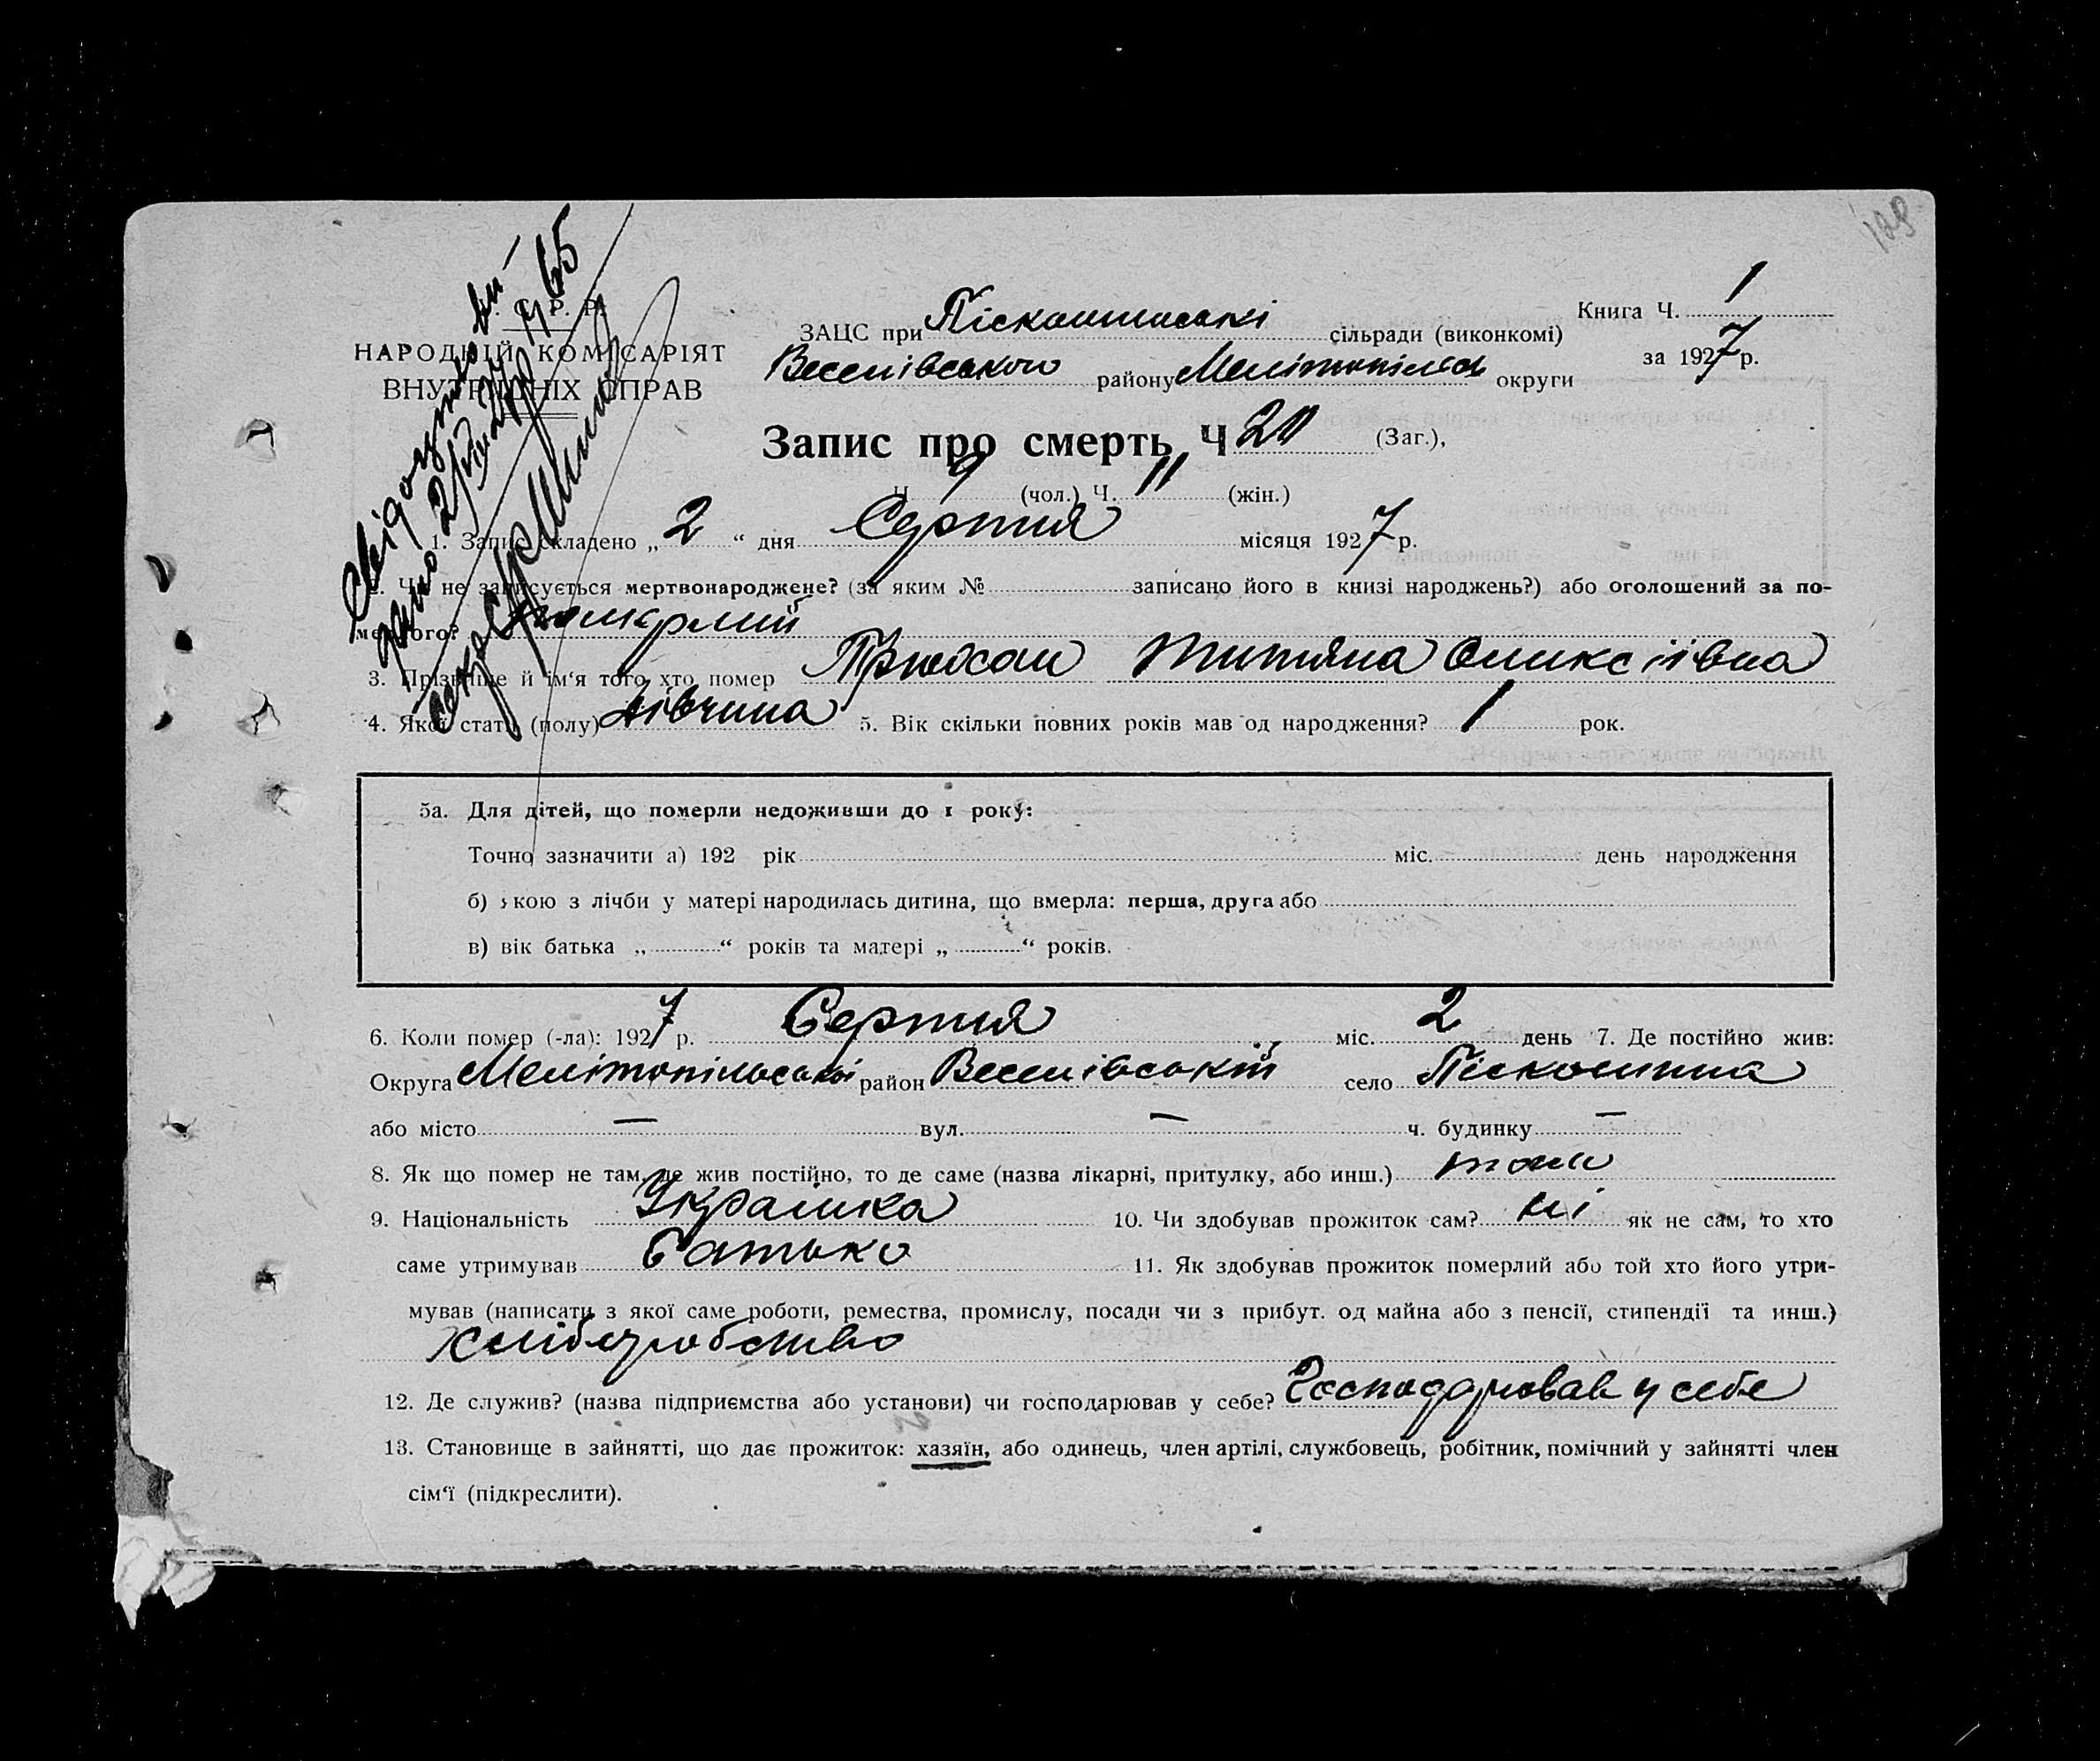 129
У. С. Р. Р.
НАРОДНІЙ КОМІСАРІЯТ
ВНУТРІШНІХ СПРАВ
Свідоцтво ви-
дано 2/VIII 27 № 65
Секр
ЗАЦС при Піскошинські сільради (виконкомі)
Книга Ч. 1
Веселівського району Мелітопільськ округи
за 1927 р.
Запис про смерть Ч 20 (Заг.),
Ч. 9 (чол.) Ч. 11 (жін.)
1. Запис складено „ 2 “ дня Серпня місяця 1927 р.
2. Чи не записується мертвонароджене? (за яким № записано його в книзі народжень?) або оголошений за по-
мерлого? померлий
3. Прізвище й ім‘я того хто помер Трюхан Титяна Олексіівна
4. Якої стати (полу) дівчина 5. Вік скільки повних років мав од народження? 1 рок.
5а. Для дітей, що померли недоживши до 1 року:
Точно зазначити а) 192 рік міс. день народження
б) якою з лічби у матері народилась дитина, що вмерла: перша, друга або
в) вік батька „ “ років та матері „ “ років.
6. Коли помер (-ла): 1927 р. Серпня міс. 2 день 7. Де постійно жив:
Округа Мелітопільської район Веселівський село Піскошина
або місто — вул. — ч. будинку —
8. Як що помер не там, де жив постійно, то де саме (назва лікарні, притулку, або инш.) там
9. Національність Украінка 10. Чи здобував прожиток сам? ні як не сам, то хто
саме утримував батько 11. Як здобував прожиток померлий або той хто його утри-
мував (написати з якої саме роботи, ремества, промислу, посади чи з прибут. од майна або з пенсії, стипендії та инш.)
хліборобство
12. Де служив? (назва підприємства або установи) чи господарював у себе? Господарював у себе
13. Становище в зайнятті, що дає прожиток: хазяїн, або одинець, член артілі, службовець, робітник, помічний у зайнятті член
сім‘ї (підкреслити).